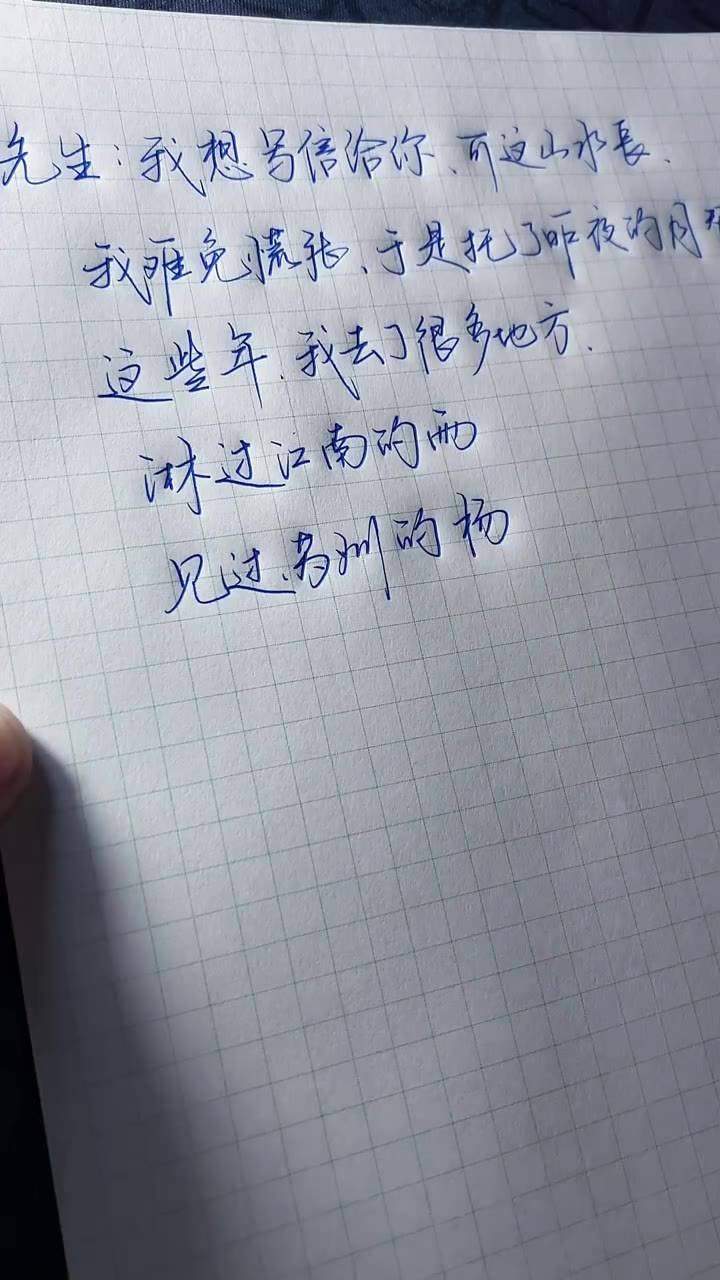 先生:我想写信给你、可这山水長、
我难免慌张、于是托了昨夜的月
这些年、我去了很多地方、
淋过江南的雨
见过苏州的杨